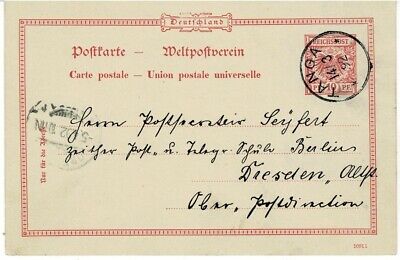 Deutschland
Postkarte – Weltpostverein
Carte postale – Union postale universelle
REICHSPOST
PF.
TANGA
Nur für die Adresse
Herrn Postsecretair Seyfert
zeither Post- u Telegr. Schule Berlin
Dresden, Altst.
Ober-Postdirection